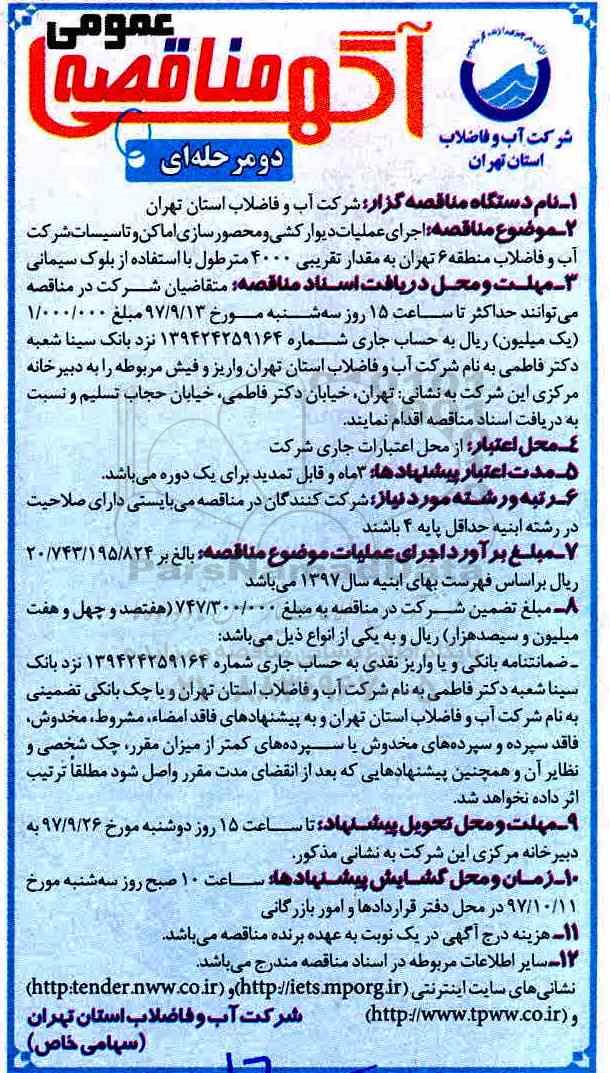 آگهی مناقصه عمومی
دو مرحله‌ای
شرکت آب و فاضلاب
استان تهران
۱ـ نام دستگاه مناقصه گزار: شرکت آب و فاضلاب استان تهران
۲ـ موضوع مناقصه: اجرای عملیات دیوارکشی و محصورسازی اماکن و تاسیسات شرکت
آب و فاضلاب منطقه ۶ تهران به مقدار تقریبی ۴۰۰۰ متر طول با استفاده از بلوک سیمانی
۳ـ مهلت و محل دریافت اسناد مناقصه: متقاضیان شرکت در مناقصه
می‌توانند حداکثر تا ساعت ۱۵ روز سه‌شنبه مورخ ۹۷/۹/۱۳ مبلغ ۱/۰۰۰/۰۰۰
(یک میلیون) ریال به حساب جاری شماره ۱۳۹۴۲۴۲۵۹۱۶۴ نزد بانک سینا شعبه
دکتر فاطمی به نام شرکت آب و فاضلاب استان تهران واریز و فیش مربوطه را به دبیرخانه
مرکزی این شرکت به نشانی: تهران، خیابان دکتر فاطمی، خیابان حجاب تسلیم و نسبت
به دریافت اسناد مناقصه اقدام نمایند.
۴ـ محل اعتبار: از محل اعتبارات جاری شرکت
۵ـ مدت اعتبار پیشنهادها: ۳ماه و قابل تمدید برای یک دوره می‌باشد.
۶ـ رتبه و رشته مورد نیاز: شرکت کنندگان در مناقصه می‌بایستی دارای صلاحیت
در رشته ابنیه حداقل پایه ۴ باشند
۷ـ مبلغ برآورد اجرای عملیات موضوع مناقصه: بالغ بر ۲۰/۷۴۳/۱۹۵/۸۲۴
ریال براساس فهرست بهای ابنیه سال ۱۳۹۷ می‌باشد
۸ـ مبلغ تضمین شرکت در مناقصه به مبلغ ۷۴۷/۳۰۰/۰۰۰ (هفتصد و چهل و هفت
میلیون و سیصدهزار) ریال و به یکی از انواع ذیل می‌باشد:
ـ ضمانتنامه بانکی و یا واریز نقدی به حساب جاری شماره ۱۳۹۴۲۴۲۵۹۱۶۴ نزد بانک
سینا شعبه دکتر فاطمی به نام شرکت آب و فاضلاب استان تهران و یا چک بانکی تضمینی
به نام شرکت آب و فاضلاب استان تهران و به پیشنهادهای فاقد امضاء، مشروط، مخدوش،
فاقد سپرده و سپرده‌های مخدوش یا سپرده‌های کمتر از میزان مقرر، چک شخصی و
نظایر آن و همچنین پیشنهادهایی که بعد از انقضای مدت مقرر واصل شود مطلقاً ترتیب
اثر داده نخواهد شد.
۹ـ مهلت و محل تحویل پیشنهاد: تا ساعت ۱۵ روز دوشنبه مورخ ۹۷/۹/۲۶ به
دبیرخانه مرکزی این شرکت به نشانی مذکور.
۱۰ـ زمان و محل گشایش پیشنهادها: ساعت ۱۰ صبح روز سه‌شنبه مورخ
۹۷/۱۰/۱۱ در محل دفتر قراردادها و امور بازرگانی
۱۱ـ هزینه درج آگهی در یک نوبت به عهده برنده مناقصه می‌باشد.
۱۲ـ سایر اطلاعات مربوطه در اسناد مناقصه مندرج می‌باشد.
نشانی‌های سایت اینترنتی (http://iets.mporg.ir) و (http:tender.nww.co.ir)
و (http://www.tpww.co.ir)
شرکت آب و فاضلاب استان تهران
(سهامی خاص)